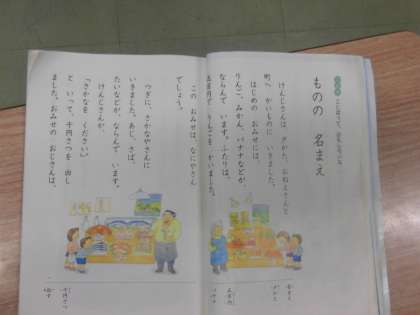 ものの 名まえ
けんじさんは、夕がた、おねえさんと
町へ かいものに いきました。
はじめの おみせには、
りんご、みかん、バナナなどが、
ならんで います。ふたりは、
五百円で りんごを かいました。
この おみせは、なにやさん
でしょう。
つぎに、さかなやさんに
いきました。あじ、さば、
たいなどが、ならんで います。
けんじさんが、
「さかなを ください。」
と いって、千円さつを 出し
ました。おみせの おじさんは、